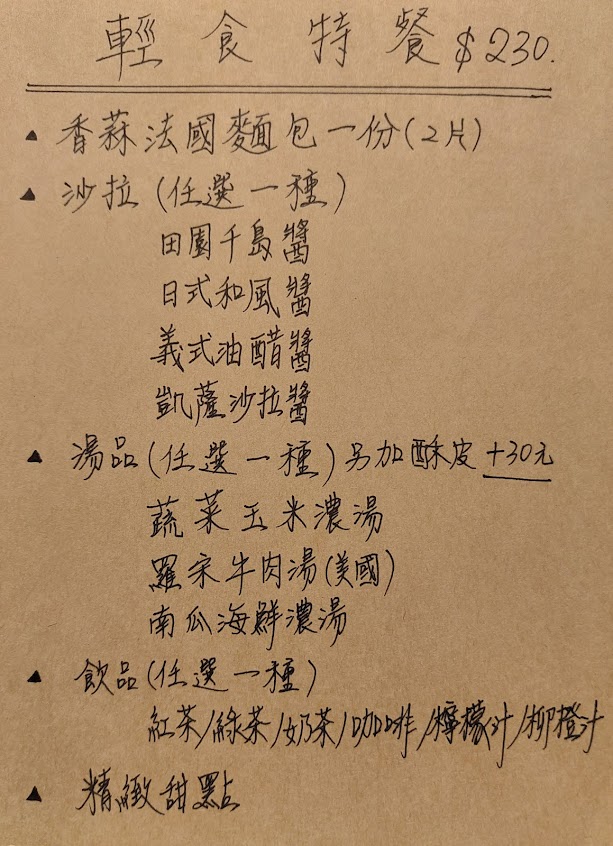 輕食特餐 $230.
▲ 香蒜法國麵包一份(2片)
▲ 沙拉(任選一種)
田園千島醬
日式和風醬
義式油醋醬
凱薩沙拉醬
▲ 湯品(任選一種)另加酥皮+30元
蔬菜玉米濃湯
羅宋牛肉湯(美國)
南瓜海鮮濃湯
▲ 飲品(任選一種)
紅茶/綠茶/奶茶/咖啡/檸檬汁/柳橙汁
▲ 精緻甜點